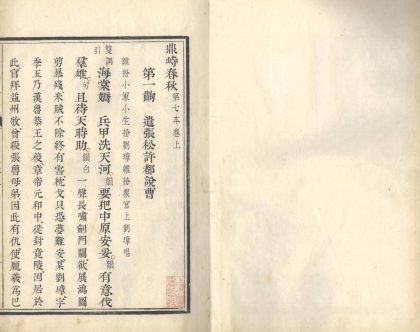 鼎峙春秋 第七本卷上
第一齣 遣張松許都說曹
雜扮小軍小生扮劉璋雜扮衆官上劉璋唱
雙調引 海棠嬌 兵甲洗天河韻要把中原安妥韻有意伐
羣雄句且待天時助韻白一聲長嘯劍門關欲展鴻圖
剪暴殘米賊不除終有害枕戈只恐夢難安某劉璋字
季玉乃漢魯恭王之後章帝元和中徙封竟陵因居於
此官拜益州牧曾殺張魯母弟因此有仇使龐羲爲巴